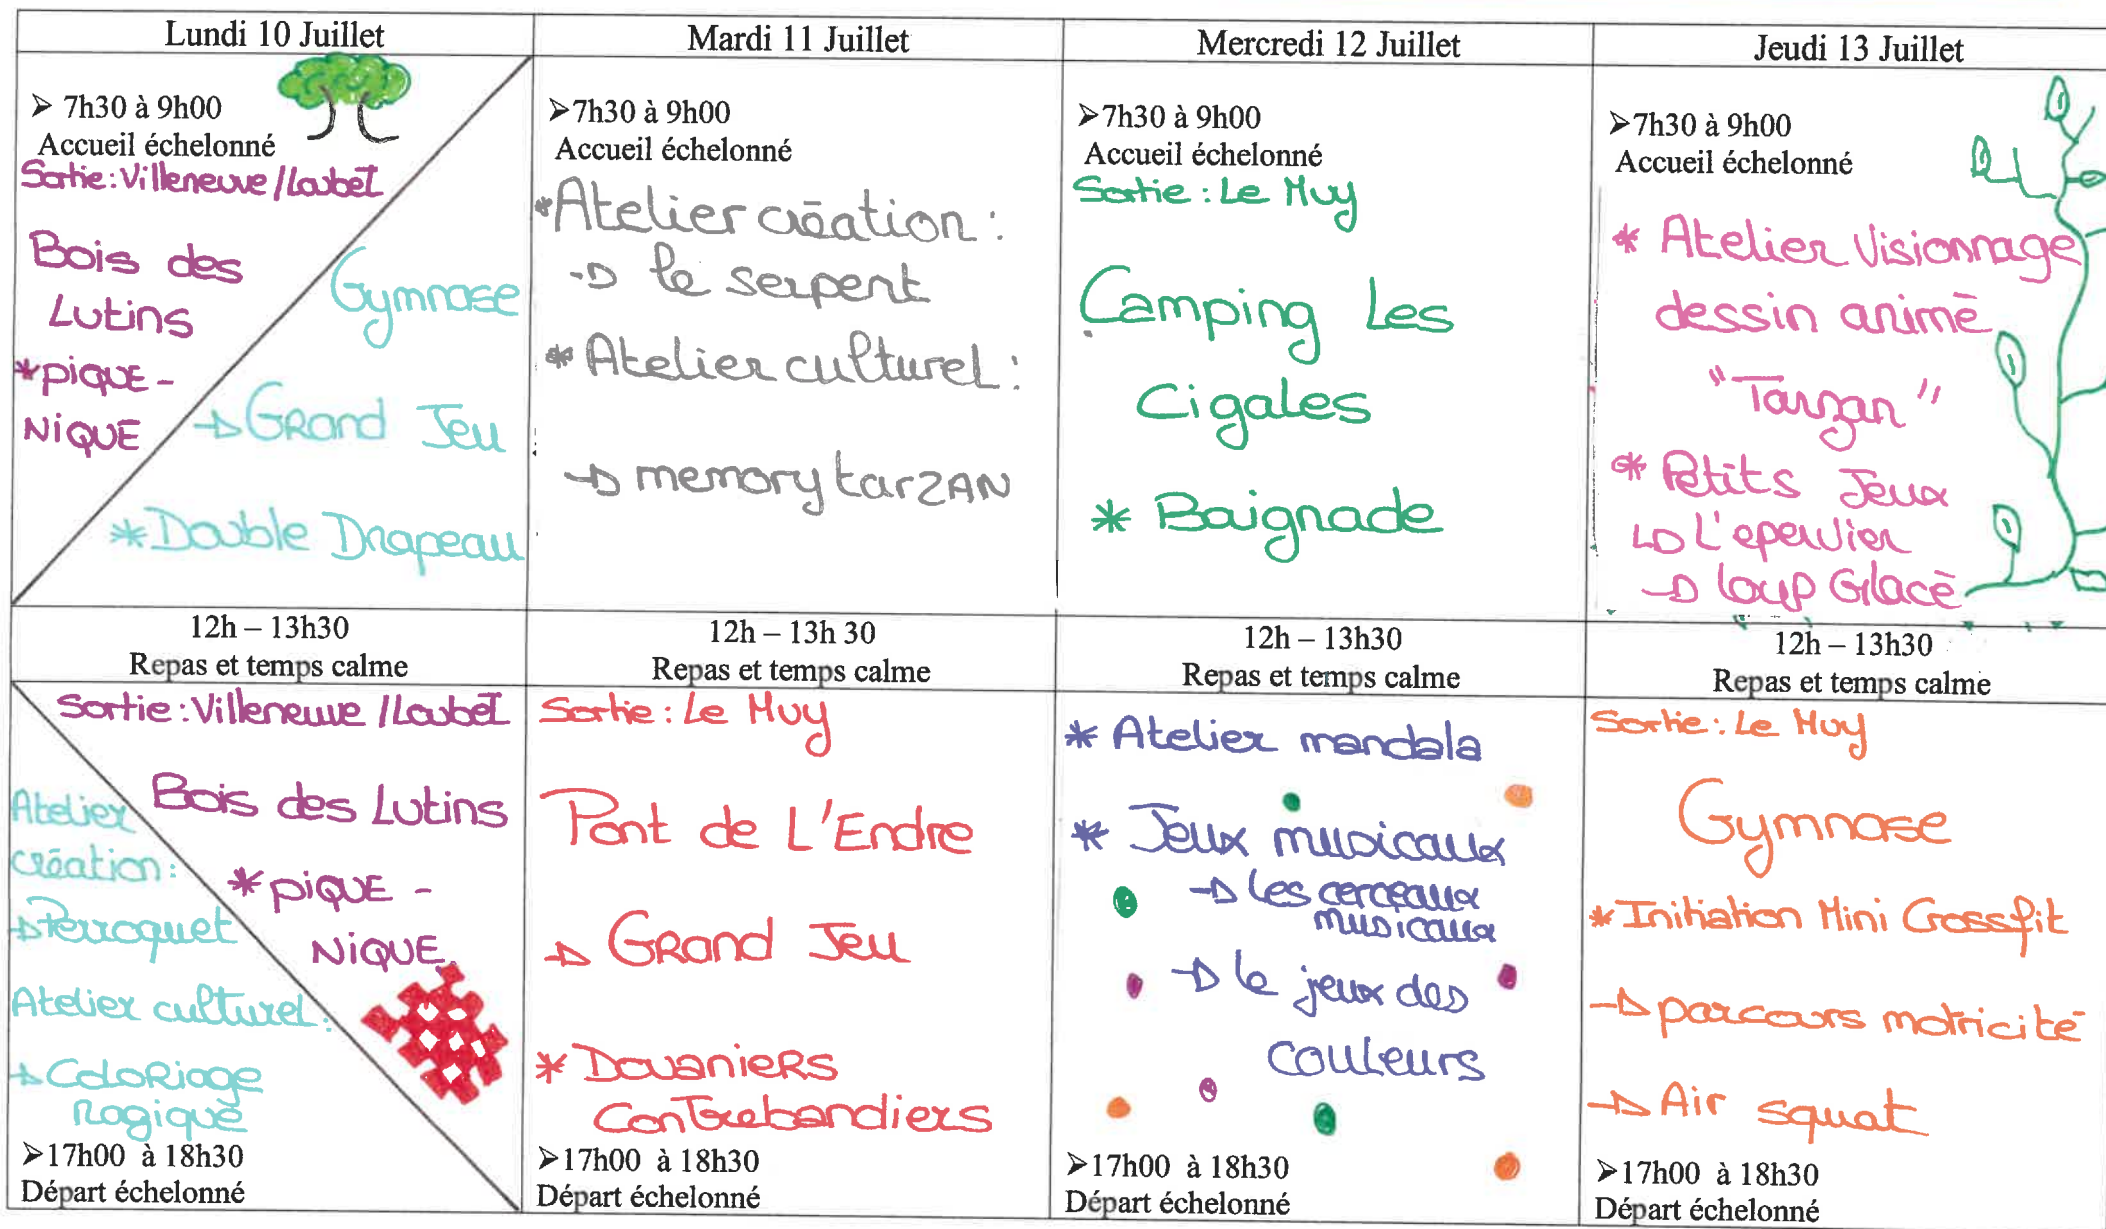 Lundi 10 Juillet
➤ 7h30 à 9h00
Accueil échelonné
Sortie : Villeneuve/Loubet
Bois des
Lutins
*pique-
NiQUE
Gymnase
→ GRand Jeu
*Double Drapeau
Mardi 11 Juillet
➤7h30 à 9h00
Accueil échelonné
*Atelier création :
→ le serpent
* Atelier culturel :
→ memory tarzAN
Mercredi 12 Juillet
➤7h30 à 9h00
Accueil échelonné
Sortie : Le Muy
Camping Les
Cigales
* Baignade
Jeudi 13 Juillet
➤7h30 à 9h00
Accueil échelonné
* Atelier Visionnage
dessin animé
"Tarzan"
* Petits Jeux
↳ L'epervier
→ loup Glacé
12h – 13h30
Repas et temps calme
12h – 13h 30
Repas et temps calme
12h – 13h30
Repas et temps calme
12h – 13h30
Repas et temps calme
Sortie : Villeneuve /Loubet
Bois des Lutins
*piQUE -
NiQUE
Atelier
création :
→Perroquet
Atelier culturel :
→ ColoRiage
Magique
➤17h00 à 18h30
Départ échelonné
Sortie : Le Muy
Pont de L'Endre
→ GRand Jeu
* DouanieRs
Contrebandiers
➤17h00 à 18h30
Départ échelonné
* Atelier mandala
* Jeux musicaux
→ les cerceaux
musicaux
→ le jeux des
couleurs
➤17h00 à 18h30
Départ échelonné
Sortie : Le Muy
Gymnase
* Initiation Mini Crossfit
→ parcours motricité
→ Air squat
➤17h00 à 18h30
Départ échelonné